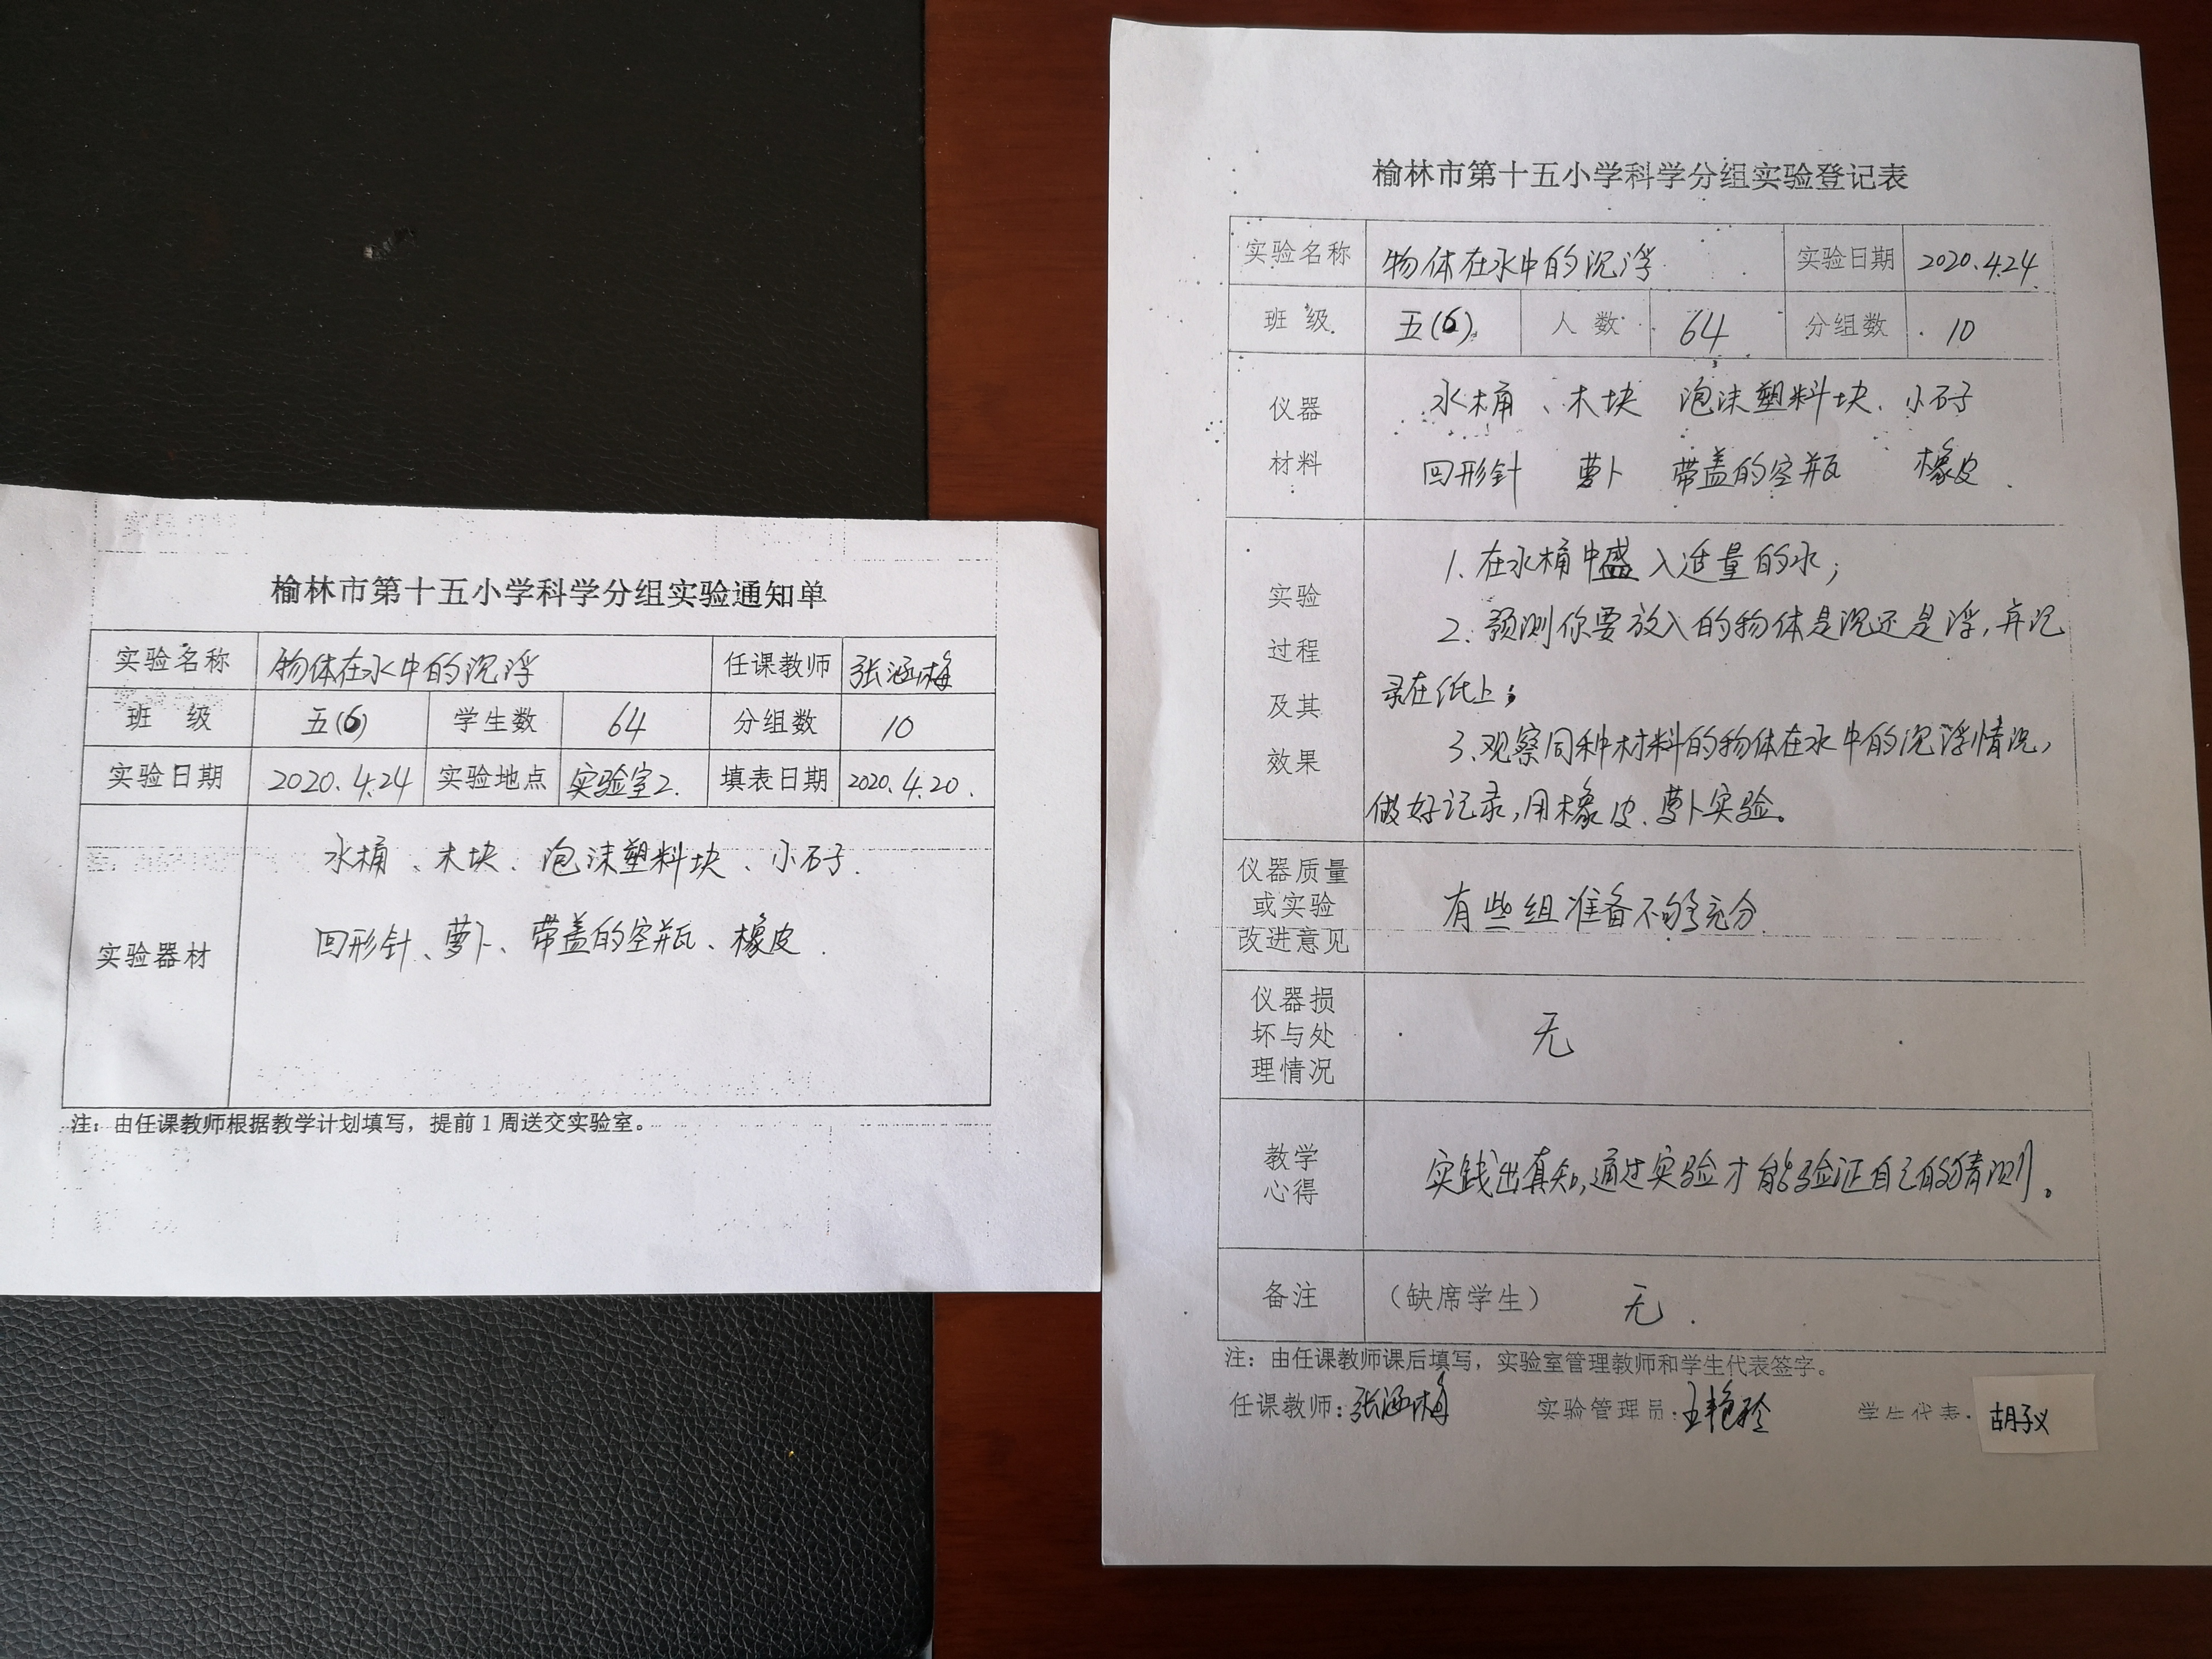 榆林市第十五小学科学分组实验通知单
实验名称 物体在水中的沉浮 任课教师 张涵梅
班 级 五(6) 学生数 64 分组数 10
实验日期 2020.4.24 实验地点 实验室2. 填表日期 2020.4.20.
水桶、木块、泡沫塑料块、小石子.
实验器材 回形针、萝卜、带盖的空瓶、橡皮.
注：由任课教师根据教学计划填写，提前1周送交实验室。
榆林市第十五小学科学分组实验登记表
实验名称 物体在水中的沉浮 实验日期 2020.4.24.
班 级 五(6) 人 数 64 分组数 10
仪器 水桶、木块 泡沫塑料块、小石子
材料 回形针 萝卜 带盖的空瓶 橡皮.
1.在水桶中盛入适量的水；
实验 2.预测你要放入的物体是沉还是浮，并记
过程 录在纸上；
及其 3.观察同种材料的物体在水中的沉浮情况，
效果 做好记录，用橡皮、萝卜实验。
仪器质量
或实验 有些组准备不够充分.
改进意见
仪器损
坏与处 无
理情况
教学 实践出真知，通过实验才能验证自己的猜测。
心得
备注 （缺席学生） 无.
注：由任课教师课后填写，实验室管理教师和学生代表签字。
任课教师：张涵梅 实验管理员：王艳玲 学生代表：胡子义